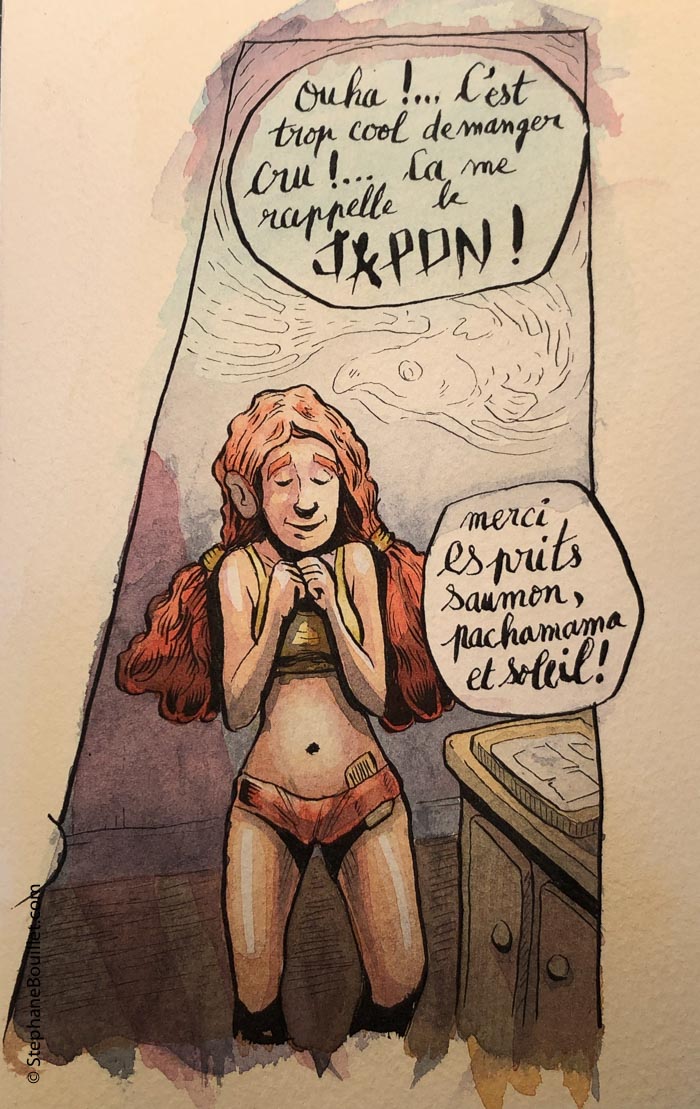 Ouha !... C'est
trop cool de manger
cru !... Ca me
rappelle le
JAPON !
merci
esprits
saumon,
pachamama
et soleil !
© StephaneBouillet.com